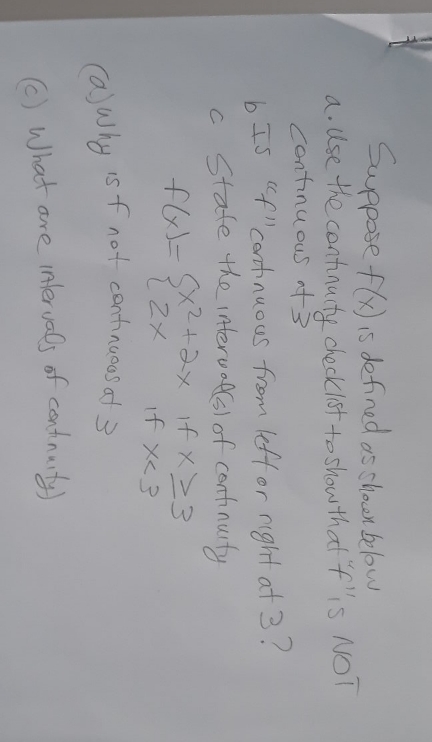 Suppose f(x) is defined as shown below
a. Use the continuity checklist to show that "f" is NOT
continuous at 3
b Is "f" continuous from left or right at 3?
c State the interval(s) of continuity
f(x)= { x²+2x if x ≥ 3
2x if x < 3
(a) Why is f not continuous at 3
(c) What are intervals of continuity)